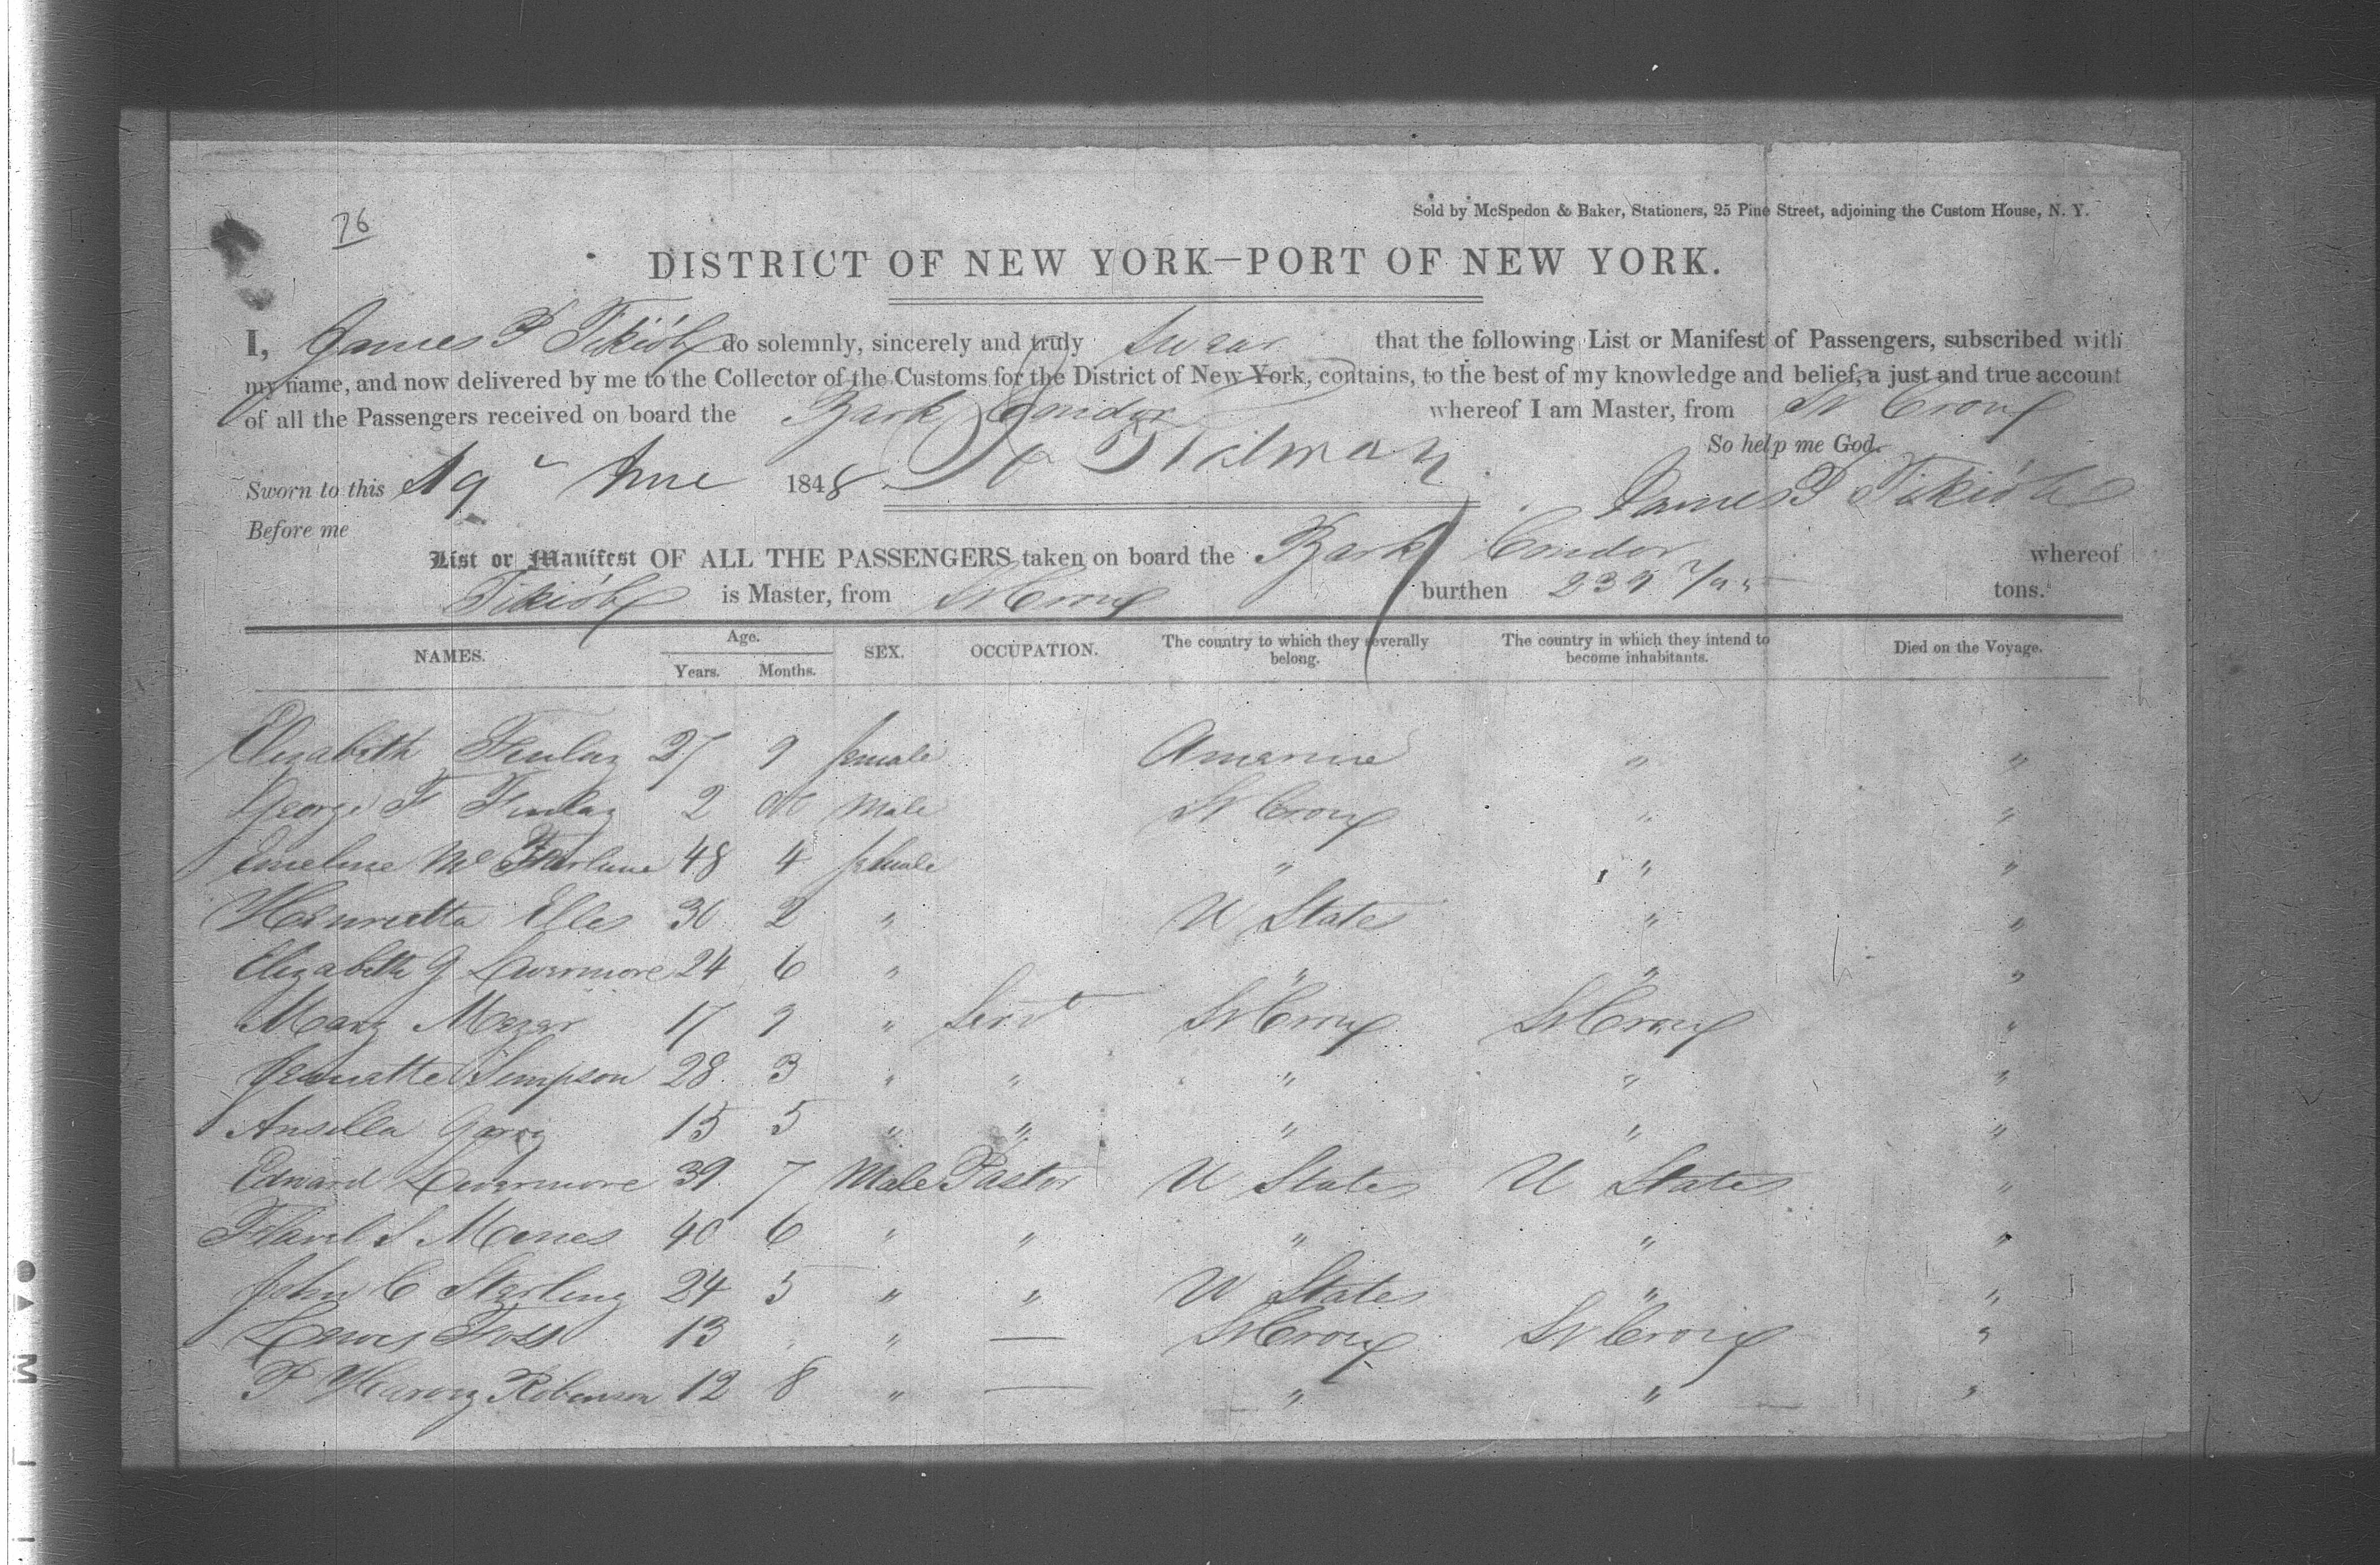 76
Sold by McSpedon & Baker, Stationers, 25 Pine Street, adjoining the Custom House, N. Y.
DISTRICT OF NEW YORK—PORT OF NEW YORK.
I, James P do solemnly, sincerely and truly swear that the following List or Manifest of Passengers, subscribed with
my name, and now delivered by me to the Collector of the Customs for the District of New York, contains, to the best of my knowledge and belief, a just and true account
of all the Passengers received on board the Bark Condor whereof I am Master, from St Croix
So help me God.
Sworn to this 19 June 1848 James P
Before me
List or Manifest OF ALL THE PASSENGERS taken on board the Bark Condor whereof
is Master, from St Croix burthen 239 tons.
NAMES. Age. Years. Months. SEX. OCCUPATION. The country to which they severally belong. The country in which they intend to become inhabitants. Died on the Voyage.
Elizabeth Finlay 27 9 female " "
George F Finlay 2 Male St Croix " "
Emeline Mc Farlane 48 4 female " " "
Henrietta Elles 30 2 " U States " "
Elizabeth G Livermore 24 6 " " " "
Mary 17 9 " Servt St Croix St Croix "
Jennatte Simpson 28 3 " " " " "
Ansella 15 5 " " " " "
Edward Livermore 39 7 Male Pastor U States U States "
Flavel S Mines 40 6 " " " " "
John C Starling 24 5 " " U States " "
Lewis Foss 13 " — St Croix St Croix "
P Harvy Robinson 12 8 " — " " "